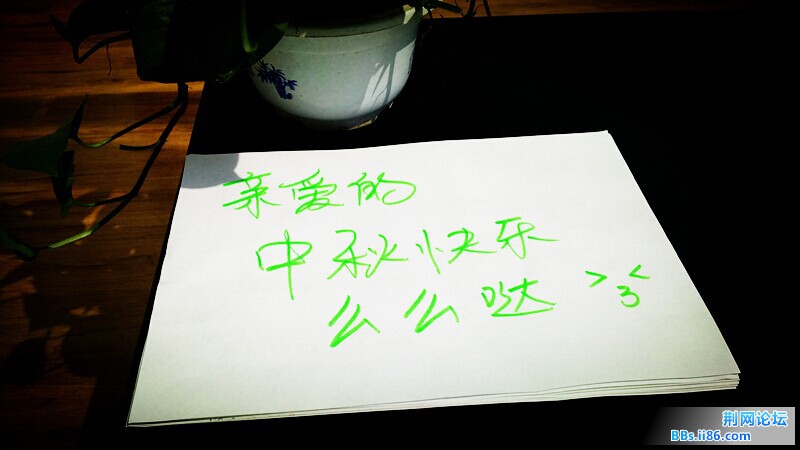 亲爱的
中秋快乐
么么哒 >3<
荆网论坛
BBs.ii86.com